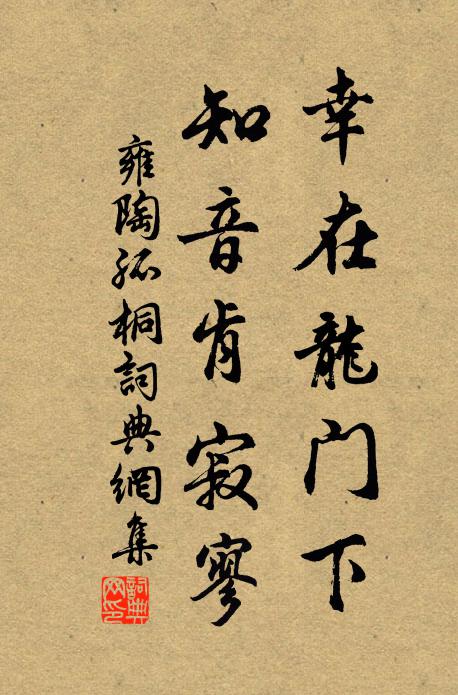 幸在龍门下
知音肯寂寥
雍陶孤桐詞典網集
詞典网印